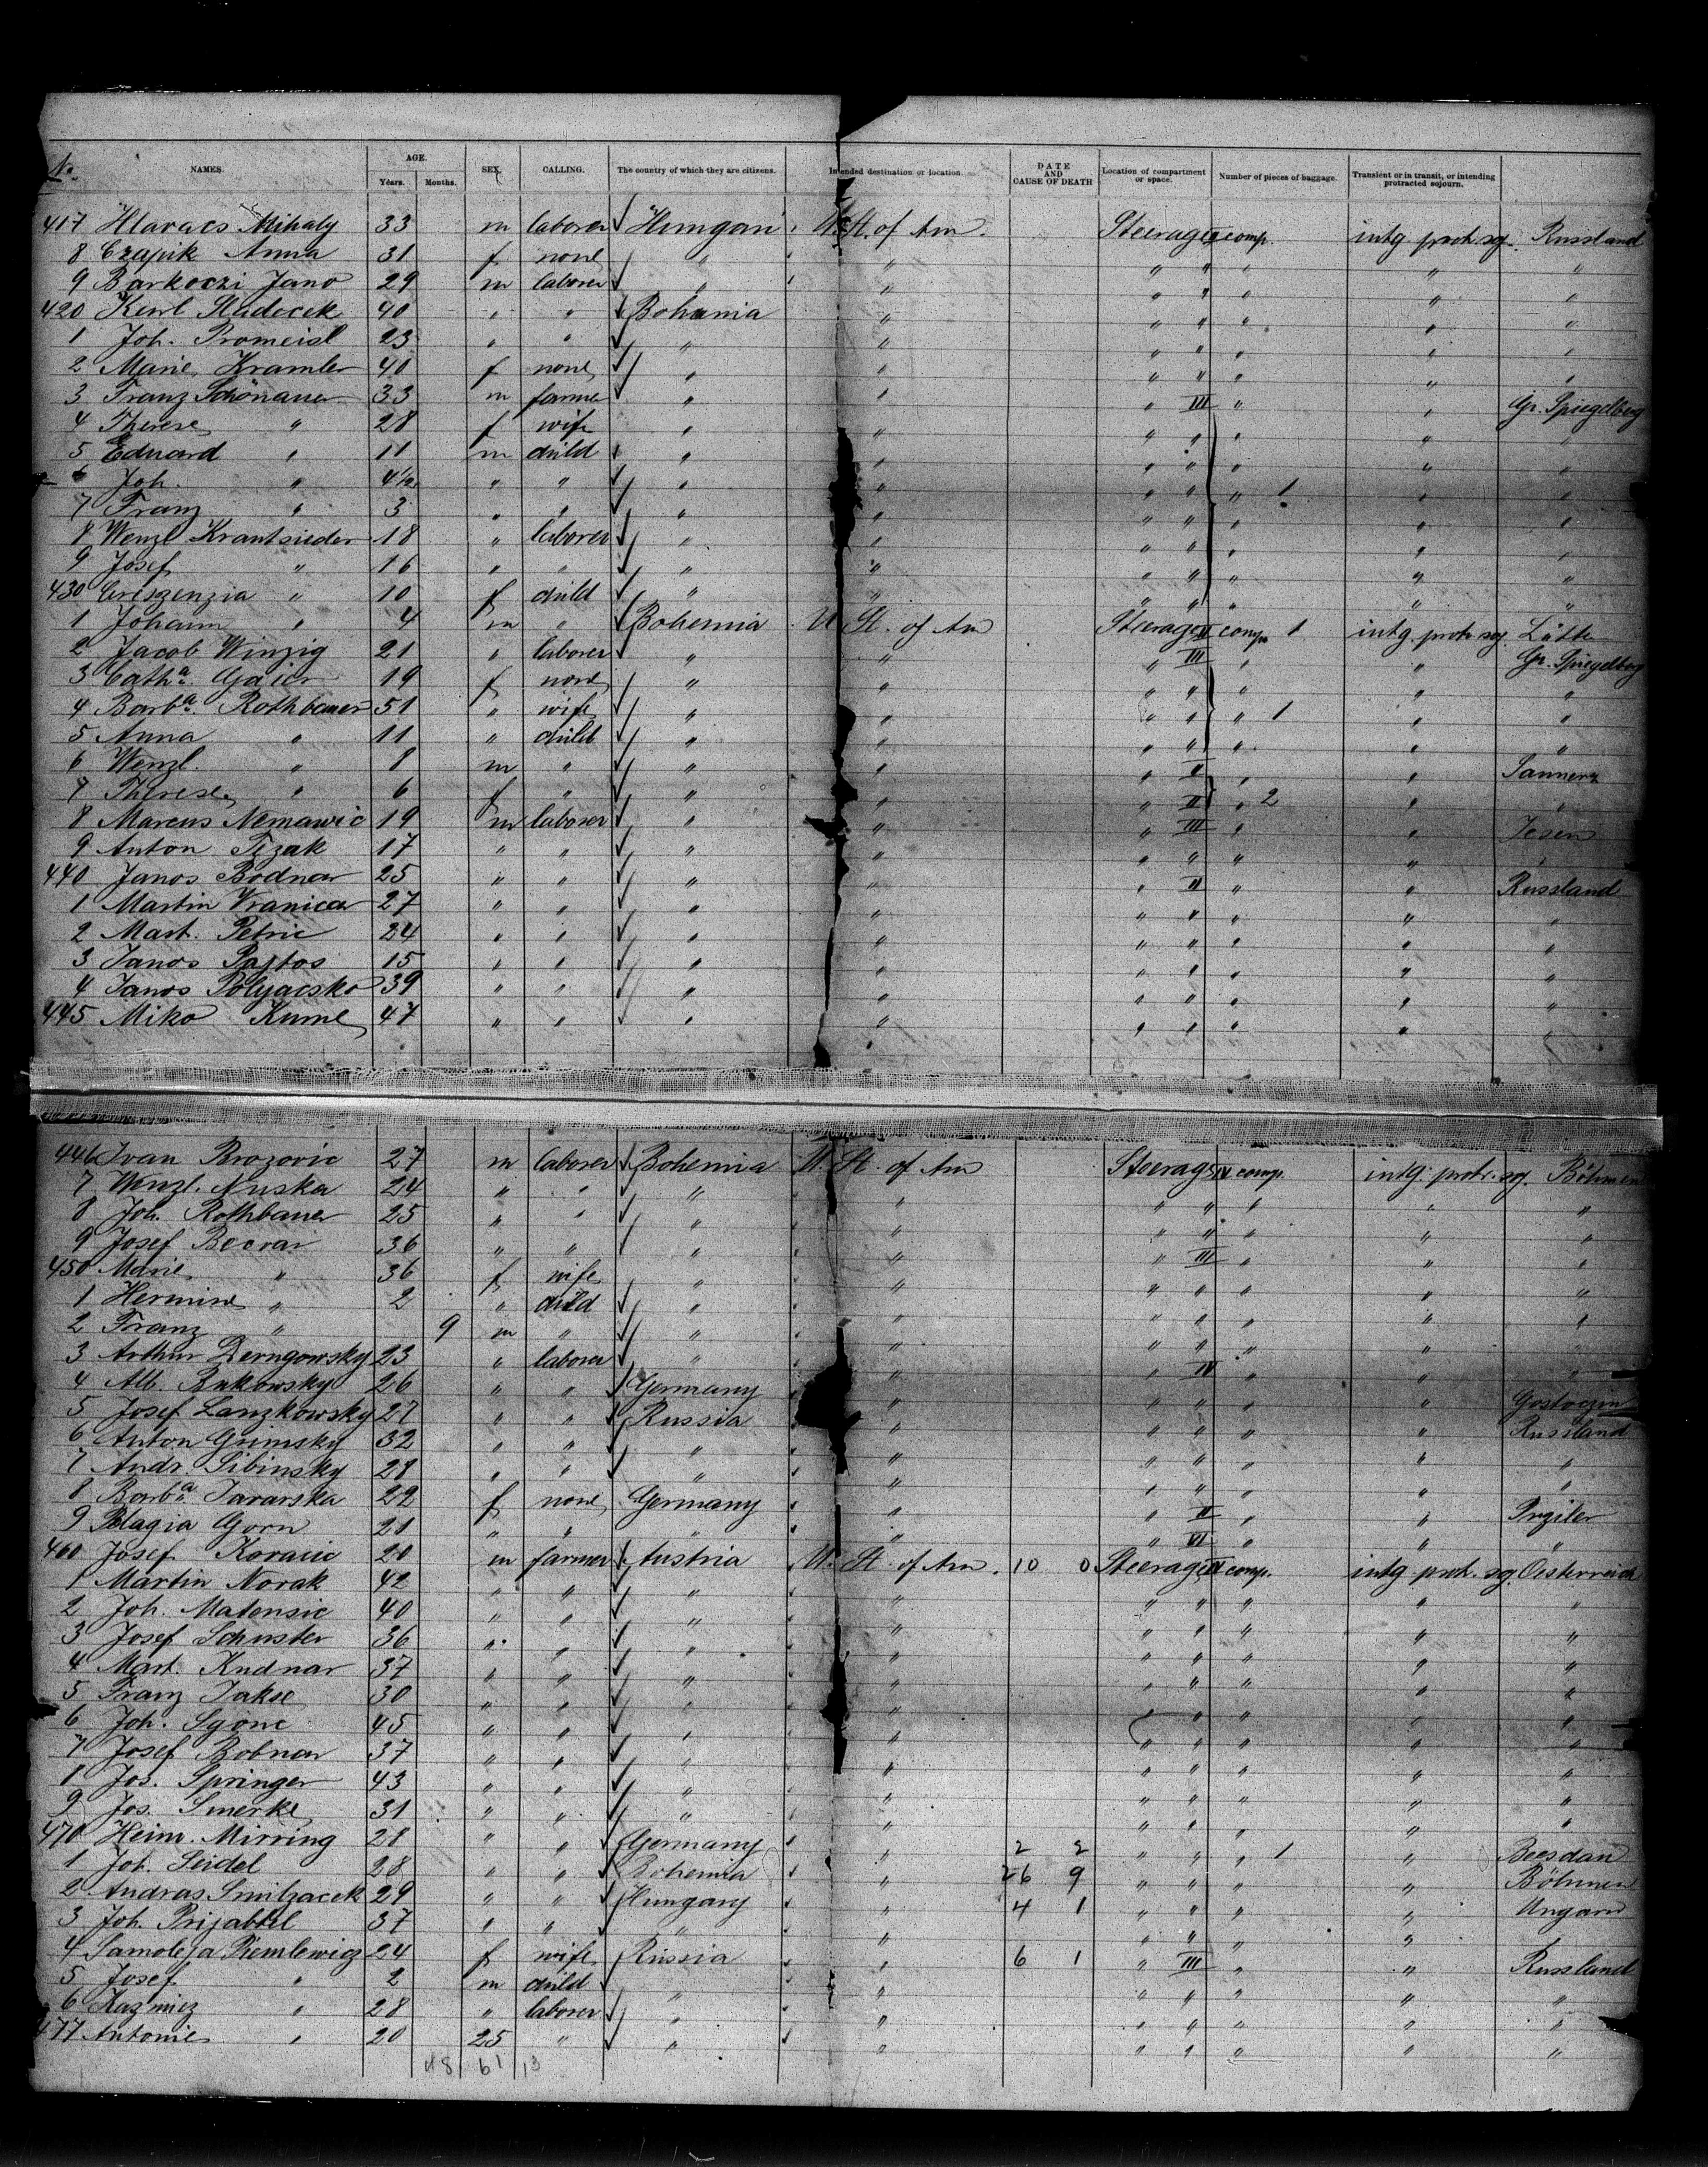 No. NAMES. AGE. Years. Months. SEX. CALLING. The country of which they are citizens. Intended destination or location. DATE AND CAUSE OF DEATH Location of compartment or space. Number of pieces of baggage. Transient or in transit, or intending protracted sojourn.
417 Hlavacs Mihaly 33 m laborer Hungari U. St. of Am. Steerage II comp. intg. protr. soj. Russland
8 Czapik Anna 31 f none " " " " " " "
9 Barkoczi Jano 29 m laborer " " " " " " "
420 Karl Sladecek 40 " " Bohemia " " " " " "
1 Joh. Promeisl 23 " " " " " " " " "
2 Marie Kramler 40 f none " " " " " " "
3 Franz Schönauer 33 m farmer " " " III " " Gr. Spiegelberg
4 Therese " 28 f wife " " " " " " "
5 Eduard " 11 m child " " " " " " "
6 Joh. " 4½ " " " " " " " 1 " "
7 Franz " 3 " " " " " " " " "
8 Wenzl Krantsieder 18 " laborer " " " " " " "
9 Josef " 16 " " " " " " " " "
430 Creszenzia " 10 f child " " " " " " "
1 Johann " 4 m " Bohemia U. St. of Am Steerage II comp. 1 intg. protr. soj. Lätte
2 Jacob Winzig 21 " laborer " " " III " " Gr. Spiegelberg
3 Catha. Gaier 19 f none " " " " " " "
4 Barba. Rothbauer 51 " wife " " " " " 1 " "
5 Anna " 11 " child " " " " " " "
6 Wenzl. " 8 m " " " " II " " Sannerz
7 Therese " 6 f " " " " II " 2 " "
8 Marcus Nemawic 19 m laborer " " " III " " Jesen
9 Anton Tezak 17 " " " " " " " " "
440 Janos Bodnar 25 " " " " " II " " Russland
1 Martin Vranicar 27 " " " " " " " " "
2 Mart. Petric 24 " " " " " " " " "
3 Janos Pajtos 15 " " " " " " " " "
4 Janos Polyacsko 39 " " " " " " " " "
445 Miko Kume 47 " " " " " " " "
446 Ivan Brozovic 27 m laborer Bohemia U. St. of Am Steerage IV comp. intg. protr. soj. Böhmen
7 Wenzl. Nuska 24 " " " " " " " " "
8 Joh. Rothbauer 25 " " " " " " " " "
9 Josef Becvar 36 " " " " " III " " "
450 Marie " 36 f wife " " " " " " "
1 Hermine " 2 " child " " " " " " "
2 Franz " 9 m " " " " " " " "
3 Arthur Derngowsky 23 " laborer " " " IV " " "
4 Alb. Bukowsky 26 " " Germany " " " " " Gostoczin
5 Josef Lanzkowsky 27 " " Russia " " " " " Russland
6 Anton Grimsky 32 " " " " " " " " "
7 Andr. Sibinsky 28 " " " " " " " " "
8 Barba. Tararska 22 f none Germany " " II " " Prziler
9 Pelagia Gorn 21 " " " " " VI " " "
460 Josef Koracic 20 m farmer Austria U. St. of Am. 10 0 Steerage II comp. intg. protr. soj. Oesterreich
1 Martin Norak 42 " " " " " " " " "
2 Joh. Matensic 40 " " " " " " " " "
3 Josef Schuster 36 " " " " " " " " "
4 Mart. Kudnar 37 " " " " " " " " "
5 Franz Jakse 30 " " " " " " " " "
6 Joh. Sgonc 45 " " " " " " " " "
7 Josef Bobnar 37 " " " " " " " " "
8 Jos. Springer 43 " " " " " " " " "
9 Jos. Smerke 31 " " " " " " " " "
470 Heinr. Mirring 28 " " Germany " 2 2 " " " 1 " Beesdau
1 Joh. Seidel 28 " " Bohemia " 26 9 " " " " Böhmen
2 Andras Smilzacek 29 " " Hungary " 4 1 " " " " Ungarn
3 Joh. Prijabtel 37 " " " " " " " " "
4 Samoleja Piemlewicz 24 f wife Russia " 6 1 " III " " Russland
5 Josef " 2 m child " " " " " " "
6 Kazmiez " 28 " laborer " " " " " " "
477 Antonie " 20 25 " " " " " " " "
48 61 13